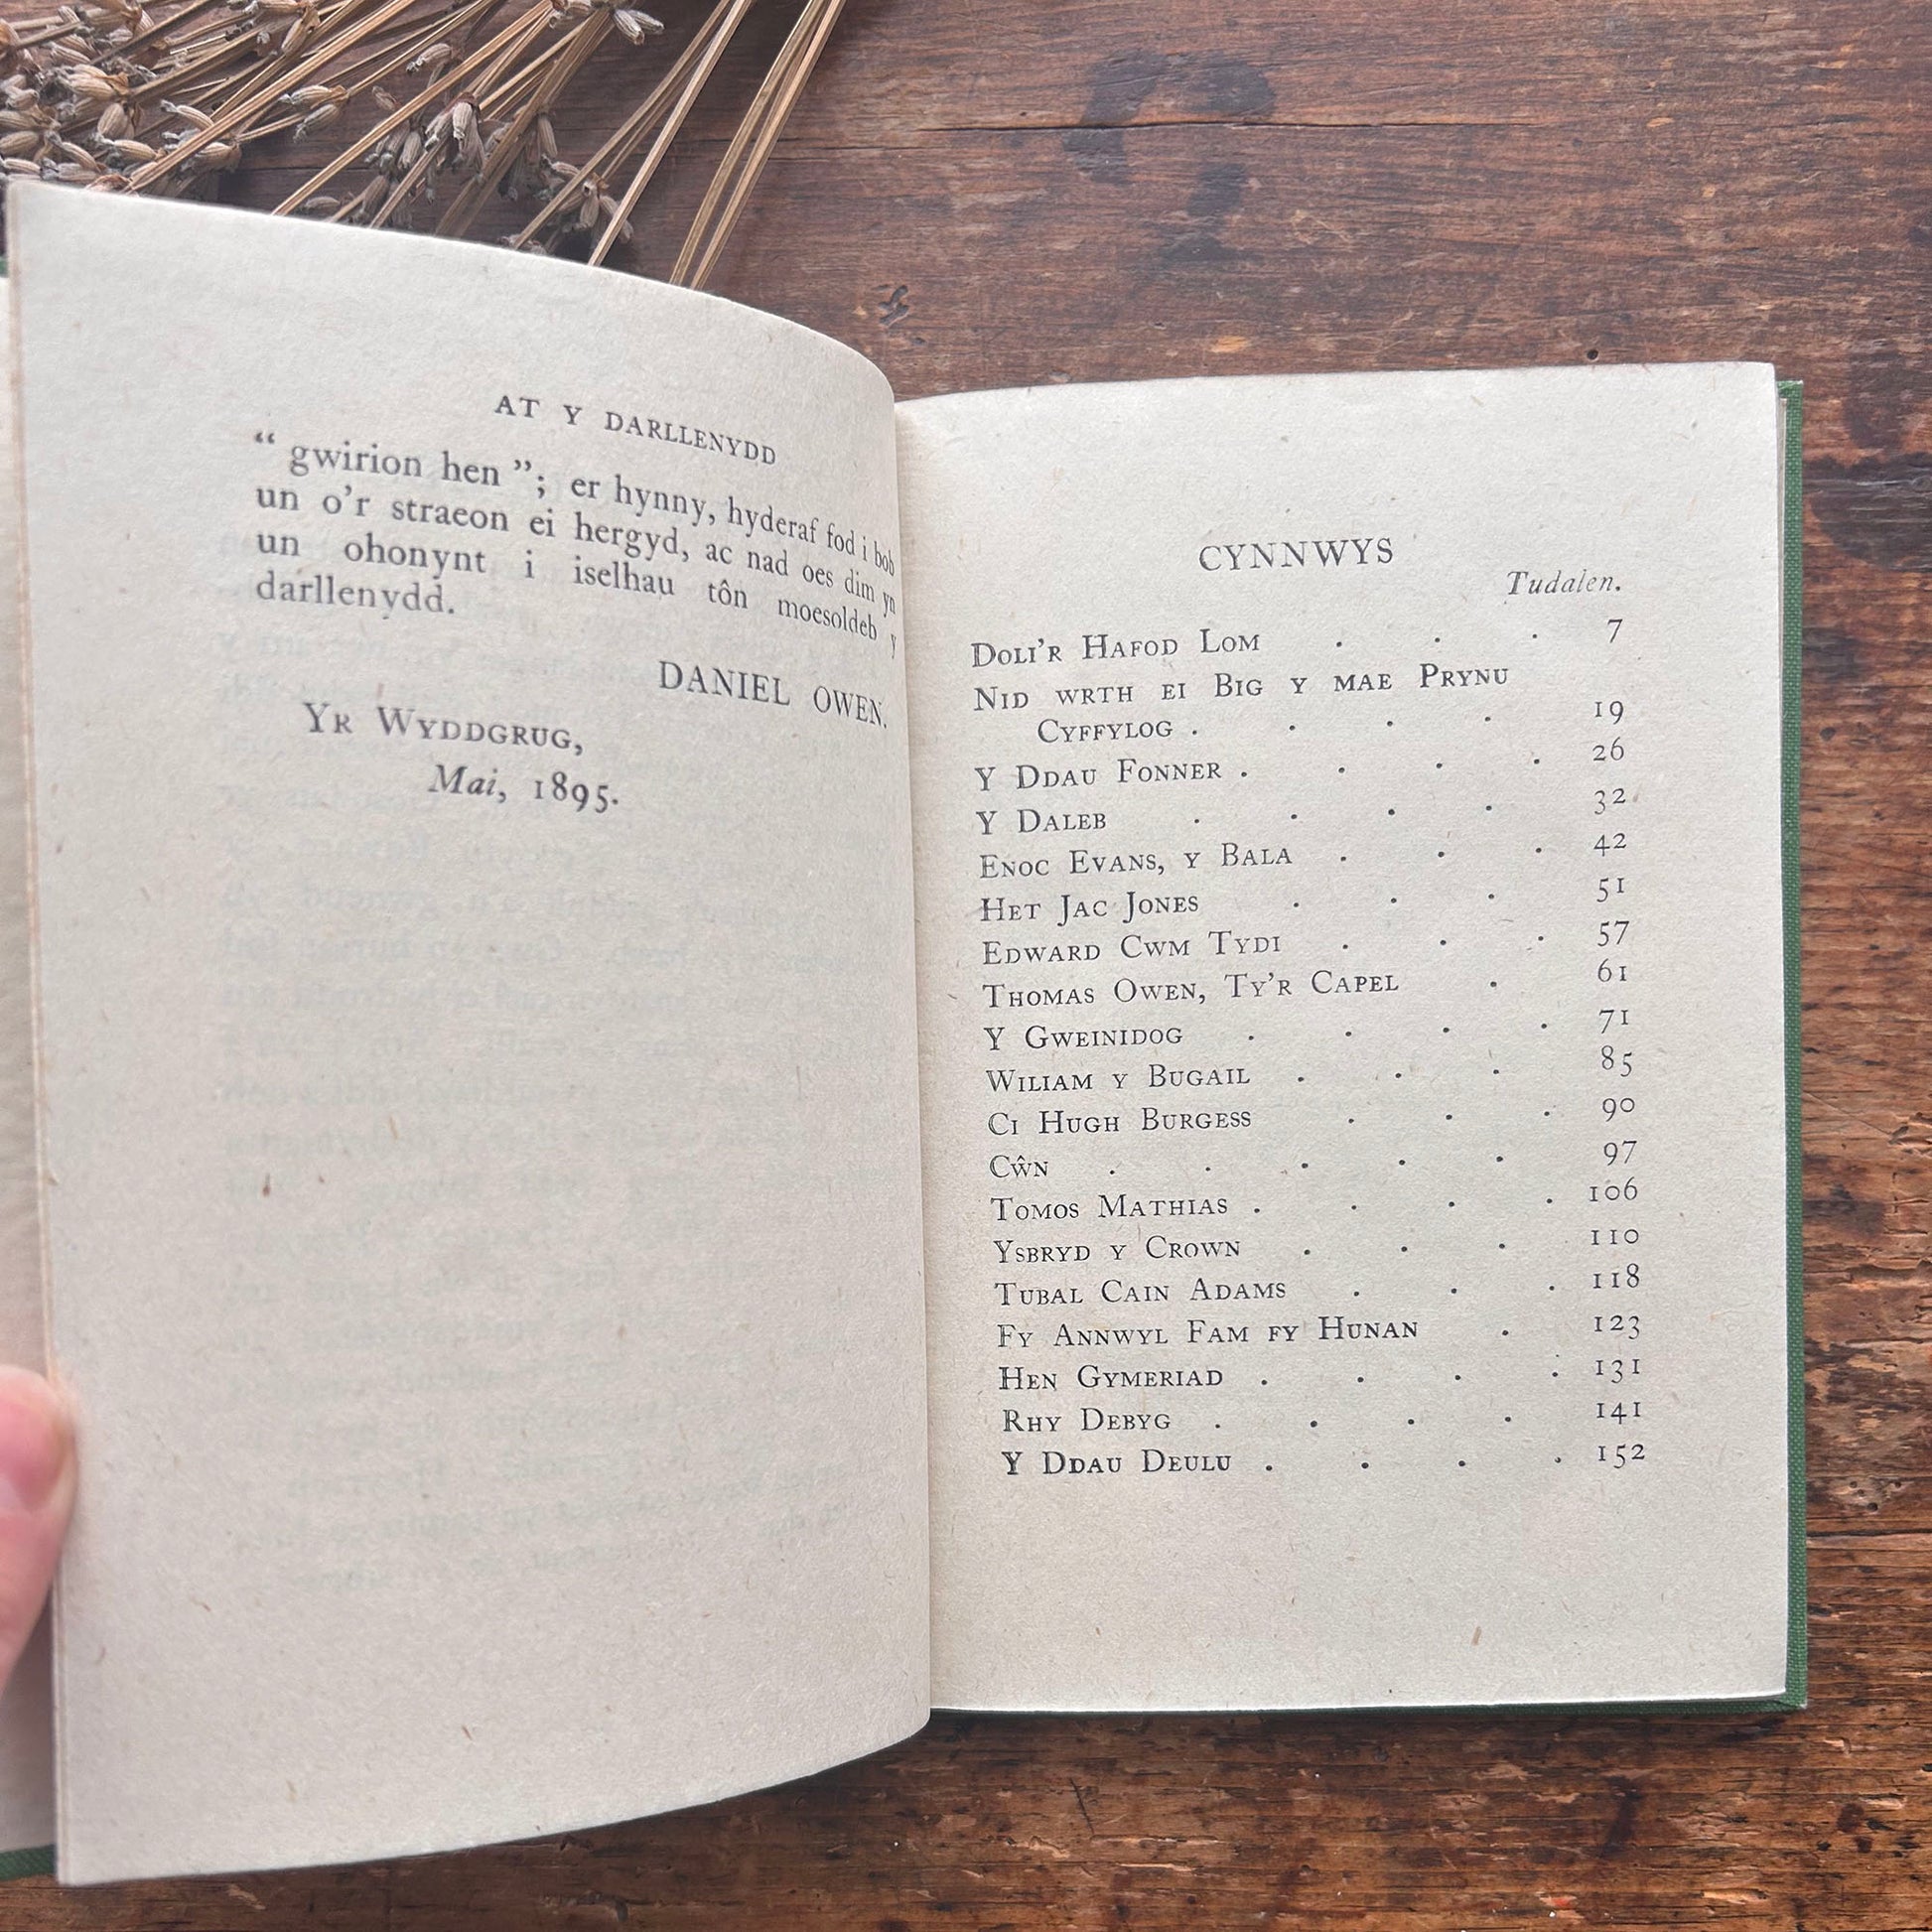 AT Y DARLLENYDD
“ gwirion hen ”; er hynny, hyderaf fod i bob
un o’r straeon ei hergyd, ac nad oes dim yn
un ohonynt i iselhau tôn moesoldeb y
darllenydd.
DANIEL OWEN.
YR WYDDGRUG,
Mai, 1895.
CYNNWYS
Tudalen.
DOLI’R HAFOD LOM . . . 7
NID WRTH EI BIG Y MAE PRYNU
CYFFYLOG . . . . 19
Y DDAU FONNER . . . . 26
Y DALEB . . . . 32
ENOC EVANS, Y BALA . . . 42
HET JAC JONES . . . 51
EDWARD CWM TYDI . . . 57
THOMAS OWEN, TY’R CAPEL . 61
Y GWEINIDOG . . . . 71
WILIAM Y BUGAIL . . . 85
CI HUGH BURGESS . . . 90
CŴN . . . . . 97
TOMOS MATHIAS . . . . 106
YSBRYD Y CROWN . . . 110
TUBAL CAIN ADAMS . . . 118
FY ANNWYL FAM FY HUNAN . 123
HEN GYMERIAD . . . . 131
RHY DEBYG . . . . 141
Y DDAU DEULU . . . . 152